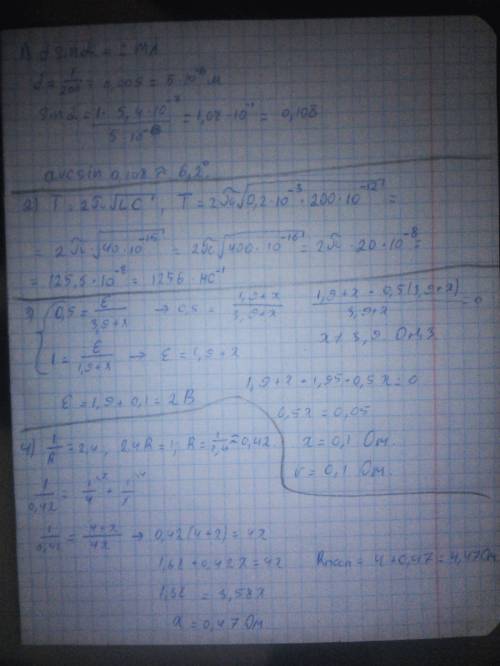 1) d sin α = ± mλ
d = 1/200 = 0,005 = 5·10⁻⁶ м
sin α = 1· 5,4·10⁻⁷ / 5·10⁻⁶ = 1,08·10⁻¹ = 0,108
arcsin 0,108 ≈ 6,2°
2) T = 2π√LC , T = 2π√0,2·10⁻³·200·10⁻¹² =
= 2π·√40·10⁻¹⁵ = 2π√400·10⁻¹⁶ = 2π·20·10⁻⁸ =
= 125,5·10⁻⁸ = 1256·10⁻¹
3) { 0,5 = ε/3,9+x → 0,5 = 1,9+x / 3,9+x
1,9+x - 0,5(3,9+x) / 3,9+x = 0
1 = ε/1,9+x → ε = 1,9+x
ε = 1,9 + 0,1 = 2 В
1,9+x - 1,95 - 0,5x = 0
0,5x = 0,05
x = 0,1 Ом.
r = 0,1 Ом.
4) 1/R = 2,4 , 2,4R = 1, R = 1/2,4 = 0,42
1/0,42 = 1/4 + 1/x
1/0,42 = 4+x/4x → 0,42(4+x) = 4x
1,68 + 0,42x = 4x
1,68 = 3,58x
x = 0,47 Ом
Rпосл = 4 + 0,47 = 4,47 Ом